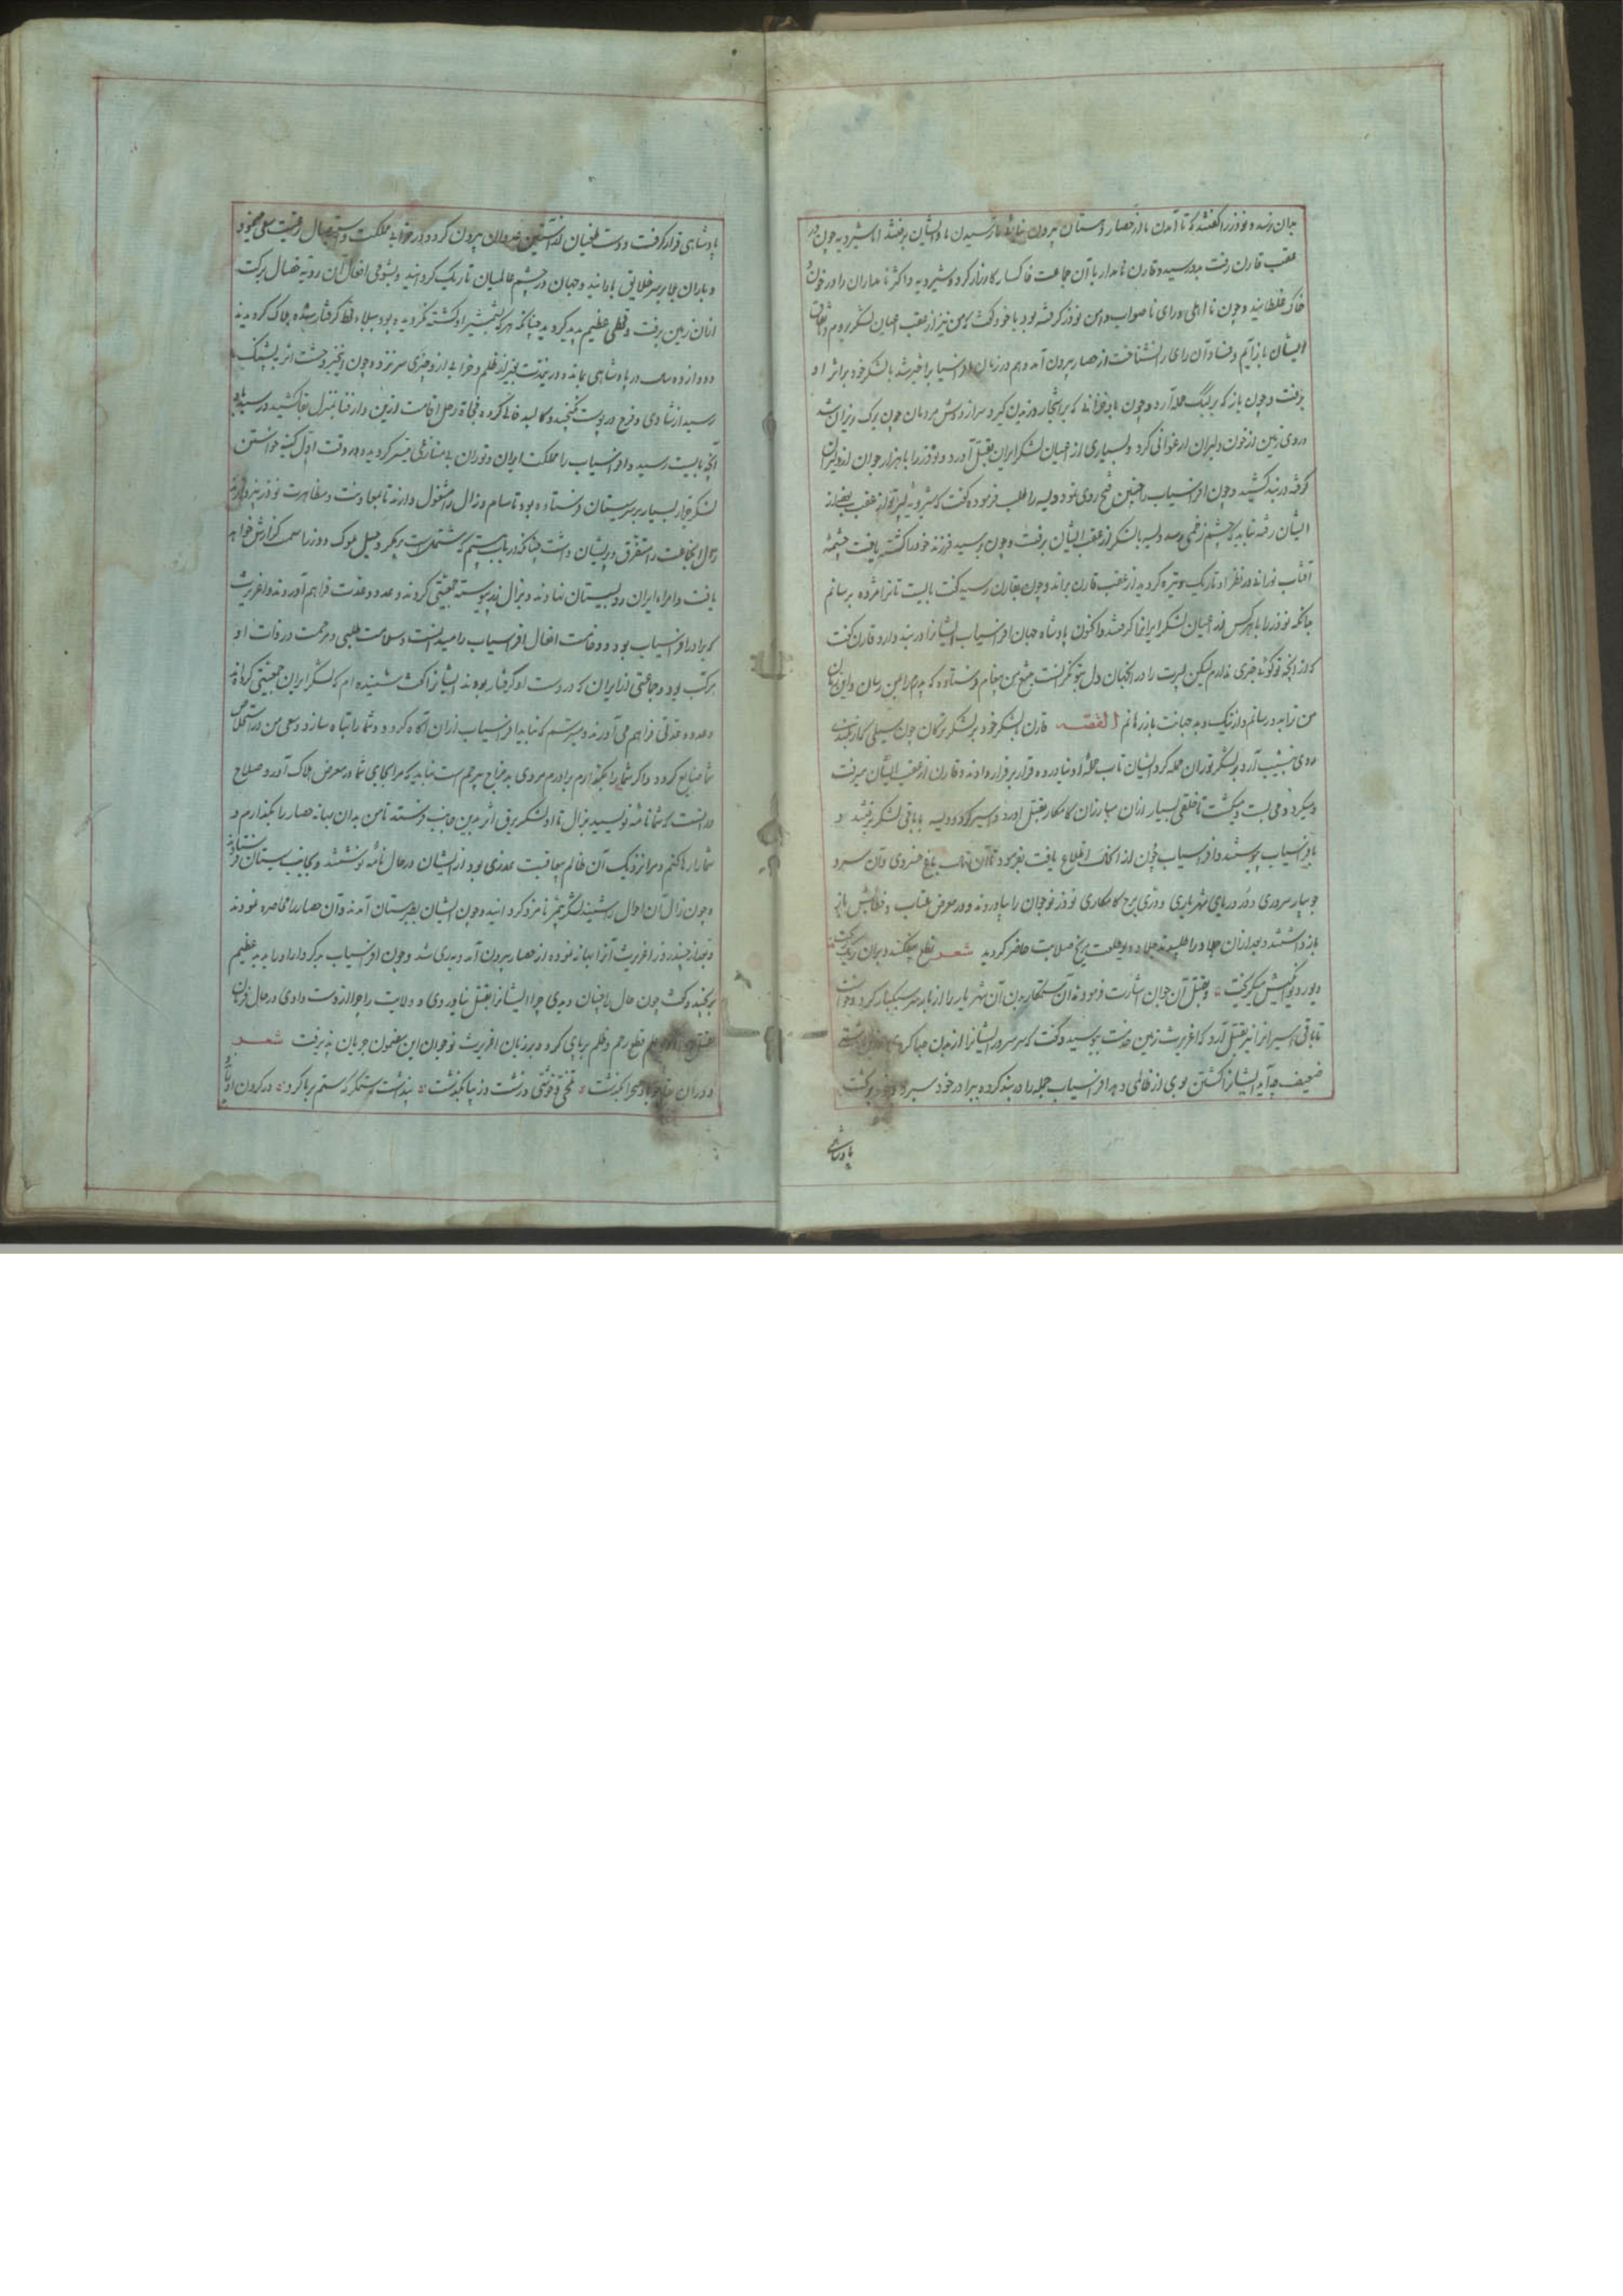 بدان رسد و نوذر را گفتند که تا آمدن ما از حصار دهستان بیرون نیاید تا رسیدن ما و ایشان برفتند اما شیرویه چون در
عقب قارن رفت بدو رسید و قارن نامدار با آن جماعت خاکسار کارزار کرد و شیرویه و اکثر نامداران را در خون و
خاک غلطانید و چون نااهلی و رای ناصواب دامن نوذر گرفته بود با خود گفت که من نیز از عقب اعیان لشکر بروم و باتفاق
ایشان باز آیم و فساد آن رای را نشناخت از حصار بیرون آمد و هم در زمان افراسیاب را خبر شد با لشکر خود بر اثر او
برفت و چون باز که بر کلنگ حمله آرد و چون باد خزانی که بر اشجار وزیدن گیرد سر از دوش مردمان چون برگ ریزان شد
و روی زمین از خون دلیران ارغوانی کرد و بسیاری از اعیان لشکر ایران بقتل آورد و نوذر را با هزار جوان از دلیران
گرفته در بند کشید و چون افراسیاب را چنین فتح روی نمود ویسه را طلب فرموده گفت که شیرویه پسر تو از عقب بعضی از
ایشان رفته نباید که چشم زخمی رسد ویسه با لشکر از عقب ایشان برفت و چون برسید فرزند خود را کشته یافت چشمهٔ
آفتاب نورانی در نظر او تاریک و تیره گردید از عقب قارن براند و چون بقارن رسید گفت بایست تا ترا مژده برسانم
بدانکه نوذر را با هر کس از اعیان لشکر ایران را گرفتند و اکنون پادشاه جهان افراسیاب ایشانرا در بند دارد قارن گفت
که از آنچه تو گوئی خبری ندارم لیکن پسرت را در آنجهان دل بتو نگرانست
من ترا بدو رسانم القصه قارن با لشکر خود بر لشکر ترکان چون سیلی که از بلندی
روی بنشیب آرد بر لشکر توران حمله کرد ایشان تاب حملهٔ او نیاورده قرار بر فرار دادند و قارن از عقب ایشان میرفت
و میکرد و می بست و میکشت تا خلقی بسیار از آن مبارزان کامکار بقتل آورد و اسیر کرد و ویسه با باقی لشکر برفتند و
بافراسیاب پیوستند و افراسیاب چون از آن اطلاع یافت بفرمود تا آن نهال باغ خسروی و آن سرو
جویبار سروری و در دریای شهریاری و دری برج کامکاری نوذر نوجوان را بیاوردند و در معرض عتاب و خطابش
باز داشتند و بعد از آن جلاد را طلبیدند جلاد دیو طلعت مریخ صلابت حاضر گردید شعر نطع بیفکند و بران ریگ ریخت
دیو ز دیوانگیش میگریخت و بقتل آن جوان اشارت فرمود
تا باقی اسیران را نیز بقتل آرد که اغریرث زمین خدمت ببوسید و گفت
ضعیف چه آید ایشانرا کشتن بوی از ظالمی دهد افراسیاب جمله را در بند کرده ببرادر خود سپرد و خود بر تخت
پادشاهی
پادشاهی قرار گرفت و دست طغیان از آستین عدوان بیرون کرد و در خرابی مملکت و استیصال رعیت سعی مینمود
و باران بلا بر سر خلایق بارانید و جهان در چشم عالمیان تاریک گردانید و بشومی افعال آن ردیه خصال برکت
از آن زمین برفت و قحطی عظیم پدید گردید چنانکه هر که بشمشیر او کشته نگردیده بود ببلاء قحط گرفتار شده هلاک گردیدند
و دوازده سال در پادشاهی بماند و در نمدت بغیر از ظلم و خرابی از و چیزی سر نزد و چون این خبر وحشت اثر به پشنگ
رسید از شادی و فرح در پوست نگنجید و کالبد خالی کرده فجاة رحل اقامت ازین دار فنا بمنزل بقا کشید
آنچه بایست رسید و افراسیاب را مملکت ایران و توران بی منازعی میسر گردید و در وقت اول کینه خواستن
لشکر جرار بسیار بر سر سیستان فرستاده بود تا سام و زال را مشغول دارند تا بمعاونت و مظاهرت نوذر نپردازند
زال آن جماعت را متفرق و پریشان داشت چنانکه در باب بیستم که مشتملست بر ذکر ملوک و وزرا سمت گزارش خواهد
یافت و امراء ایران رو بسیستان نهادند و بزال زر پیوسته جمعیتی کردند و عدد و عدت فراهم آوردند و اغریرث
که برادر افراسیاب بود و وخامت افعال افراسیاب را میدانست و سلامت طلبی و مرحمت در ذات او
مرکب بود و جماعتی از ایران که در دست او گرفتار بودند ایشانرا گفت شنیده ام که لشکر ایران جمعیتی کرده اند
و عدد و عدتی فراهم می آورند و میترسم که نباید افراسیاب از آن آگاه گردد و شما را تباه سازد و سعی من در استخلاص
شما ضایع گردد و اگر شما را بگذارم برادرم مردی بد مزاج بی رحم است نباید که مرا بجای شما در معرض هلاک آورد و صلاح
در آنست که شما نامه نویسید بزال تا او لشکر برق اثر بدین جانب فرستد تا من بدان بهانه حصار را بگذارم و
شما را رها کنم و مرا نزدیک آن ظالم بد عاقبت عذری بود ایشان در حال نامه نوشتند و بجانب سیستان فرستادند
و چون زال آن احوال را شنید لشکر بیشمر نامزد گردانید و چون ایشان بطبرستان آمدند و آن حصار را محاصره نمودند
و بعد از چند روز اغریرث آنرا بهانه نموده از حصار بیرون آمد و بری شد و چون افراسیاب بدکردار او را بدید عظیم
برنجید و گفت چون حال را چنان دیدی چرا ایشانرا بقتل نیاوردی و ولایت را چرا از دست دادی در حال فرمان
بقتل قطع رحم و ظلم بر پای کرد و بر زبان اغریرث نوجوان این مضمون جریان پذیرفت شعر
دوران بقا چو باد صحرا بگذشت تلخی و خوشی و زشت و زیبا بگذشت پنداشت ستمگر که ستم بر ما کرد در گردن او بماند